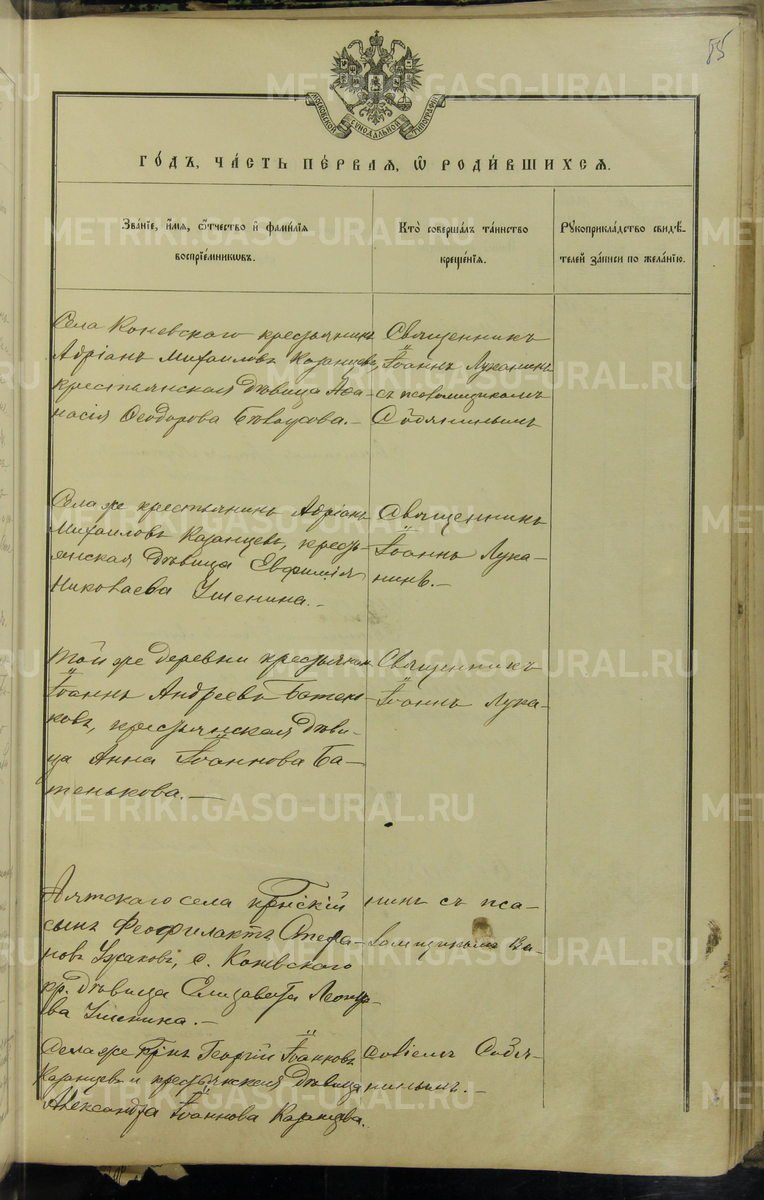 85
МОСКОВСКОЙ СѴНОДАЛЬНОЙ ТИПОГРАФІИ
ГО́ДЪ, ЧА́СТЬ ПЕ́РВАЯ, Ѽ РОДИ́ВШИХСЯ.
Зва́нїе, и́мя, ѻ́тчество и҆ фами́лїя
воспрїе́мникѡвъ.
Кто̀ соверша́лъ та́инство
креще́нїя.
Рꙋкоприкла́дство свидѣ́-
телей за́писи по жела́нїю.
Села Коневскаго крестьянинъ
Адріанъ Михаиловъ Казанцевъ,
крестьянская дѣвица Афа-
насія Ѳеодорова Бѣлоусова.—
Священникъ
Іоаннъ Луканинъ
съ псаломщикомъ
Села же крестьянинъ Адріанъ
Михаиловъ Казанцевъ, кресть-
янская дѣвица Евфимія
Николаева Ушенина.—
Священникъ
Іоаннъ Лука-
нинъ.—
Той же деревни крестьянинъ
Іоаннъ Андреевъ Батень-
ковъ, крестьянская дѣви-
ца Анна Іоаннова Ба-
тенькова.—
Священникъ
Іоаннъ Лука-
Аятскаго села
сынъ Феофилактъ Стефа-
новъ с. Коневскаго
кр. дѣвица Елизавета
Ушенина.—
нинъ съ пса-
ломщикомъ
Села же Георгій Іоанновъ
Казанцевъ и крестьянская дѣвица
Александра Іоаннова Казанцева.
METRIKI.GASO-URAL.RU